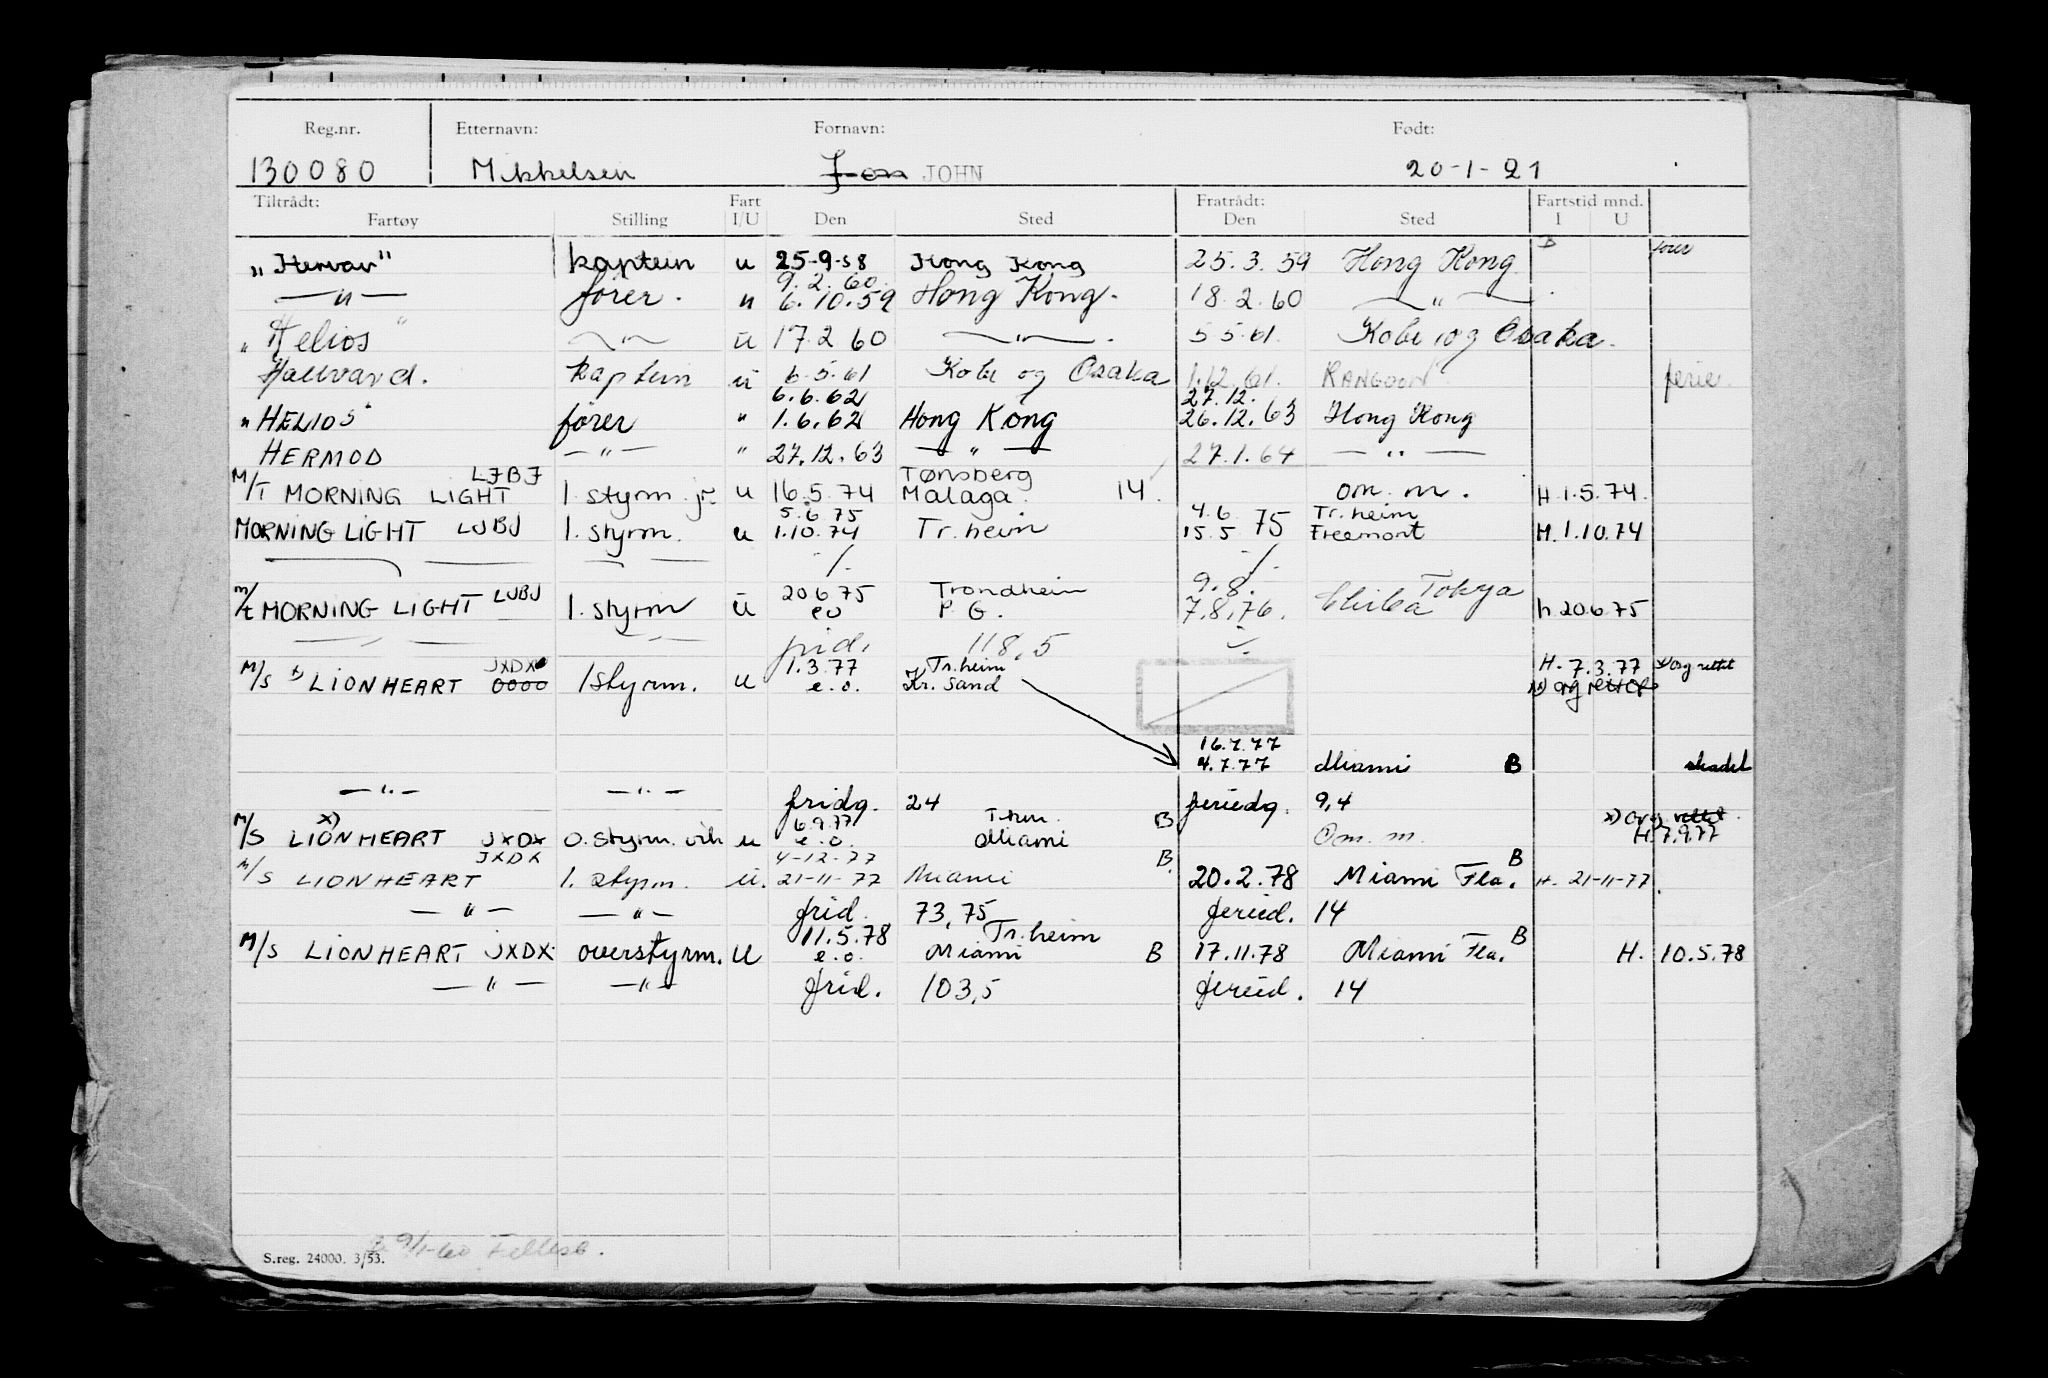 Reg.nr. Etternavn: Fornavn: Født:
130080 Mikkelsen Jon JOHN 20-1-21
Tiltrådt: Fart Fratrådt: Fartstid mnd.
Fartøy Stilling I/U Den Sted Den Sted I U
B fører
"Hervar" kaptein u 25-9-58 Hong Kong 25.3.59 Hong Kong
9.2.60
—"— fører. " 6.10.59 Hong Kong. 18.2.60 —"—.
"Helios" —"— u 17.2 60 —"—. 5.5.61. Kobe og Osaka.
Hallvard. kaptein u 6.5.61 Kobe og Osaka 1.12.61. RANGOON ferie.
6.6.62 27.12.
"HELIOS" fører " 1.6.62 Hong Kong 26.12.63 Hong Kong
HERMOD —"— " 27.12.63 —"— 27.1.64 —"—
LJBJ Tønsberg
M/T MORNING LIGHT 1. styrm. jr. u 16.5.74 Malaga. 14. om. m. H.1.5.74.
5.6 75 4.6. Tr.heim
MORNING LIGHT LJBJ 1. styrm. u 1.10.74 Tr.heim 15.5 75 Freemont H.1.10.74
-/. -/.
LJBJ 20 6 75 Trondheim 9.8. Tokya
m/t MORNING LIGHT 1. styrm u eo P.G. 7.8.76. Chiba h.20.6.75
frid. 118,5
JXDX 1.3.77 Tr.heim H. 7.3.77 x) org rettet
M/S x) LIONHEART 0000 1styrm. u e.o. Kr. sand x) org rettet
16.7.77
4.7.77 Miami B skadet
—"— —"— fridg. 24 feriedg. 9,4
x) 6.9.77 T.hm. B x) org. rettet.
M/S LIONHEART JXDX o.styrm. vik u e.o. Miami Om. m. H.7.9.77
JXDX 4-12-77 B. B
M/S LIONHEART 1. styrm. u. 21-11-77 Miami 20.2.78 Miami Fla. H. 21-11-77.
—"— —"— frid. 73,75 feried. 14
11.5.78 Tr.heim B
M/S LIONHEART JXDX overstyrm. U e.o. Miami B 17.11.78 Miami Fla. H. 10.5.78
—"— —"— frid. 103,5 feried. 14
9/1-60
S.reg. 24000. 3/53.